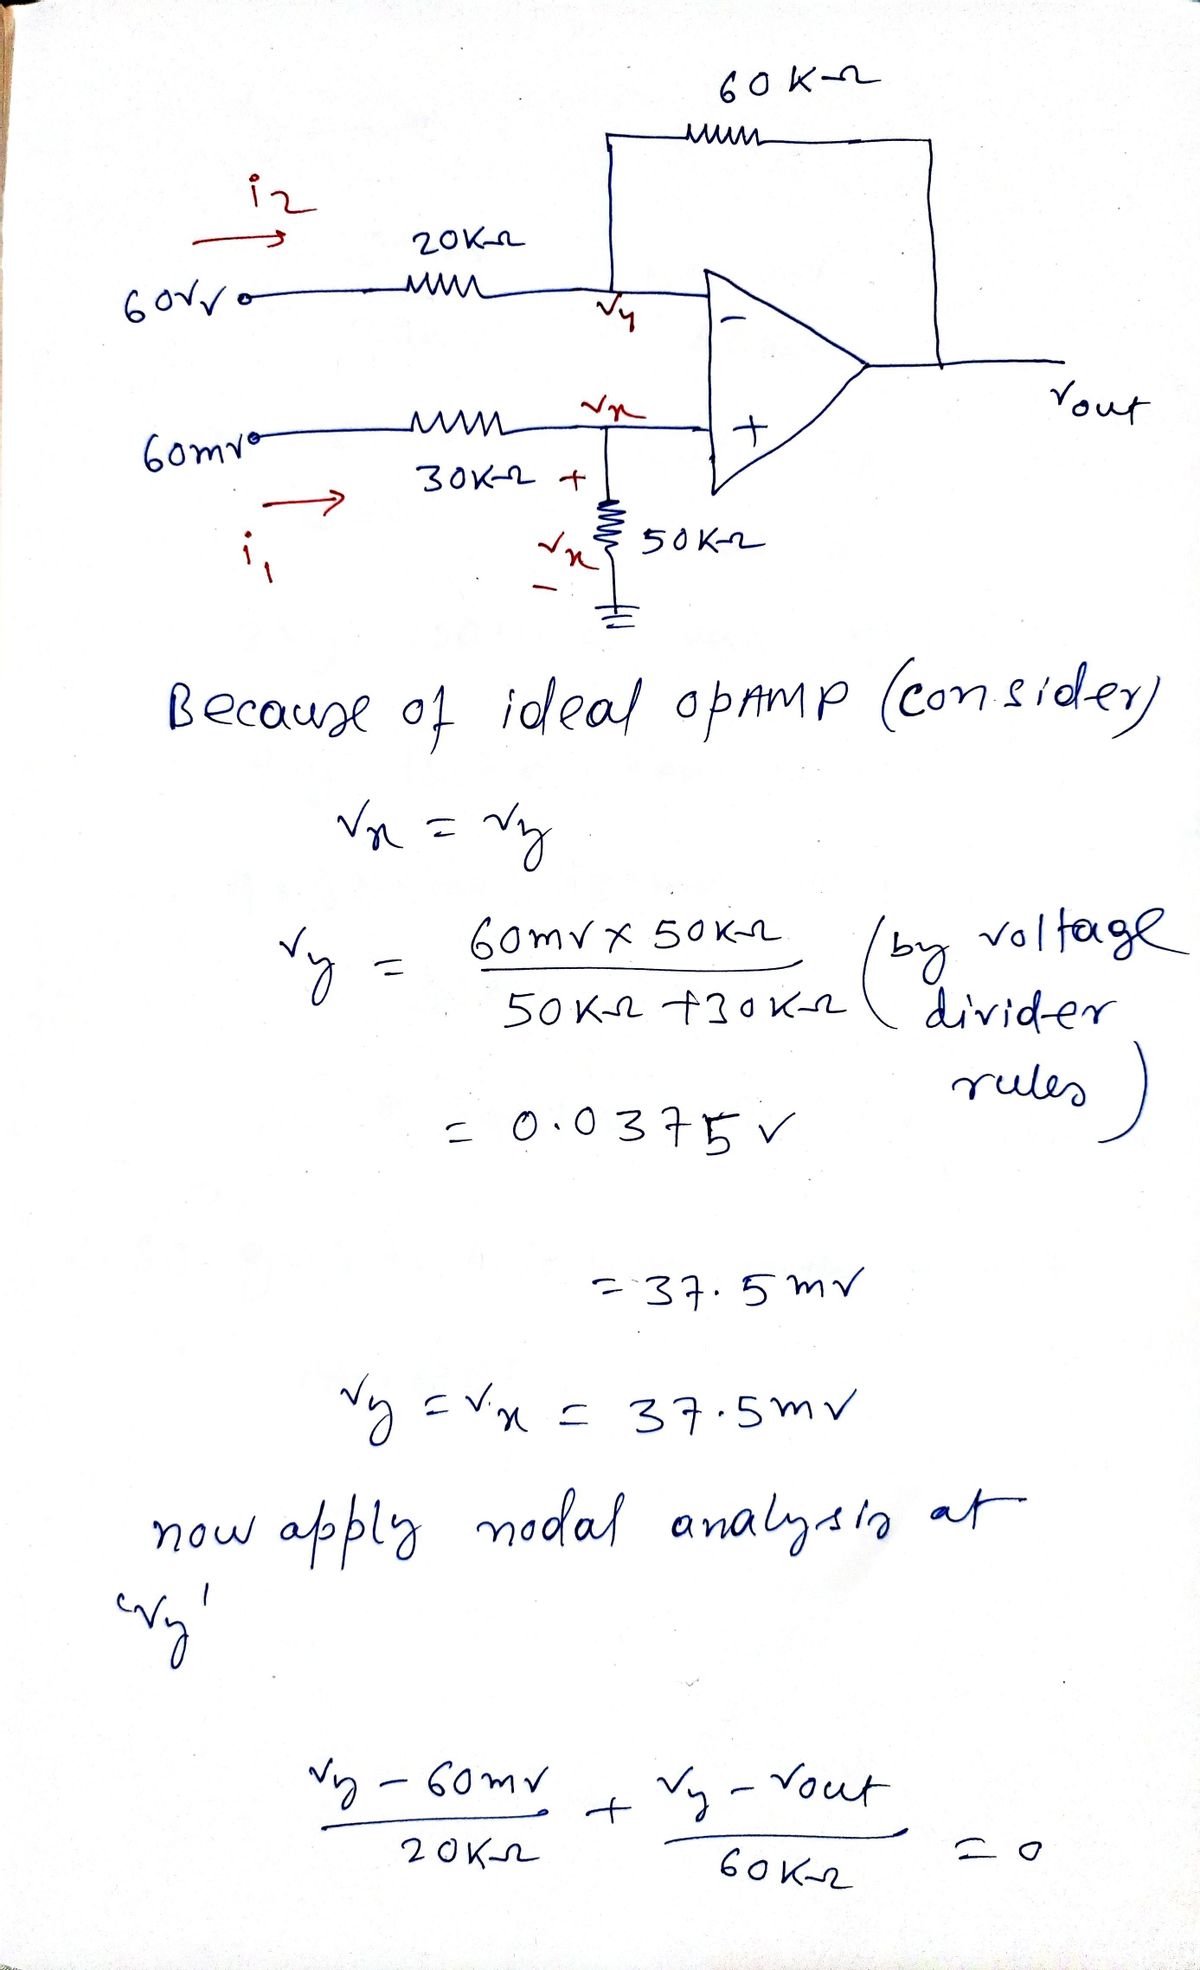 60 KΩ
i2
20KΩ
60vv
vy
-
vx
+
60mv
30KΩ +
vout
i1
vx
-
50KΩ
Because of ideal opAMP (consider)
vx = vy
vy = 60mv x 50KΩ / 50KΩ + 30KΩ (by voltage divider rules)
= 0.0375 v
= 37.5 mv
vy = vx = 37.5mv
now apply nodal analysis at
'vy'
vy - 60mv / 20KΩ + vy - vout / 60KΩ = 0